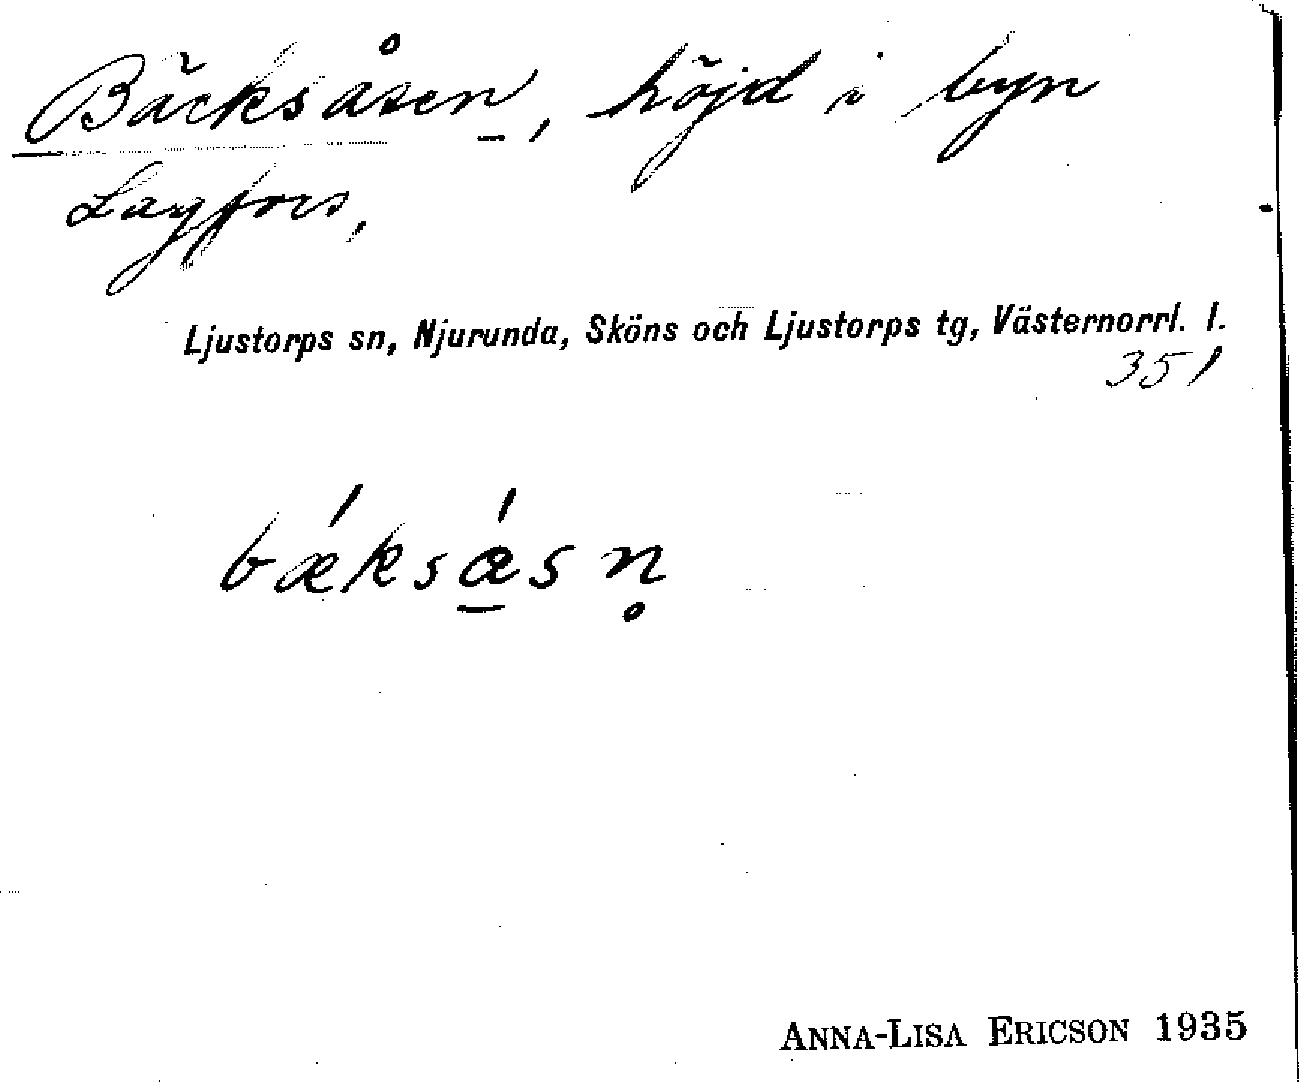 Bäcksåsen, höjd i byn
Lagfors,
Ljustorps sn, Njurunda, Sköns och Ljustorps tg, Västernorrl. l.
351
bǽksǽ̱sn̥
ANNA-LISA ERICSON 1935